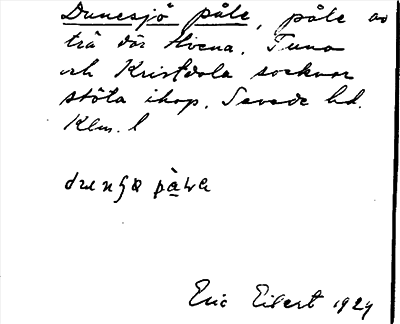 Dunesjö påle, påle av
trä där Hvena, Tuna
och Kristdala socknar
stöta ihop. Sevede hd.
Klm. l

Eric Eilert 1924